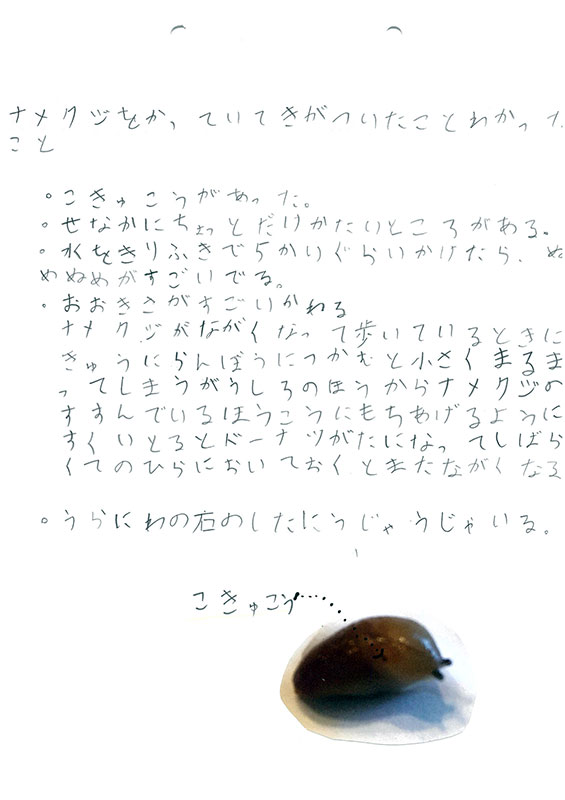 ナメクジをかっていてきがついたことわかった
こと
・こきゅこうがあった。
・せなかにちょっとだけかたいところがある。
・水をきりふきで5かいぐらいかけたら、ぬ
めぬめがすごいでる。
・おおきさがすごいかわる
ナメクジがながくなって歩いているときに
きゅうにらんぼうにつかむと小さくまるま
ってしまうがうしろのほうからナメクジの
すすんでいるほうこうにもちあげるように
すくいとるとドーナツがたになってしばら
くてのひらにおいておくとまたながくなる
・うらにわの石のしたにうじゃうじゃいる。
こきゅこう